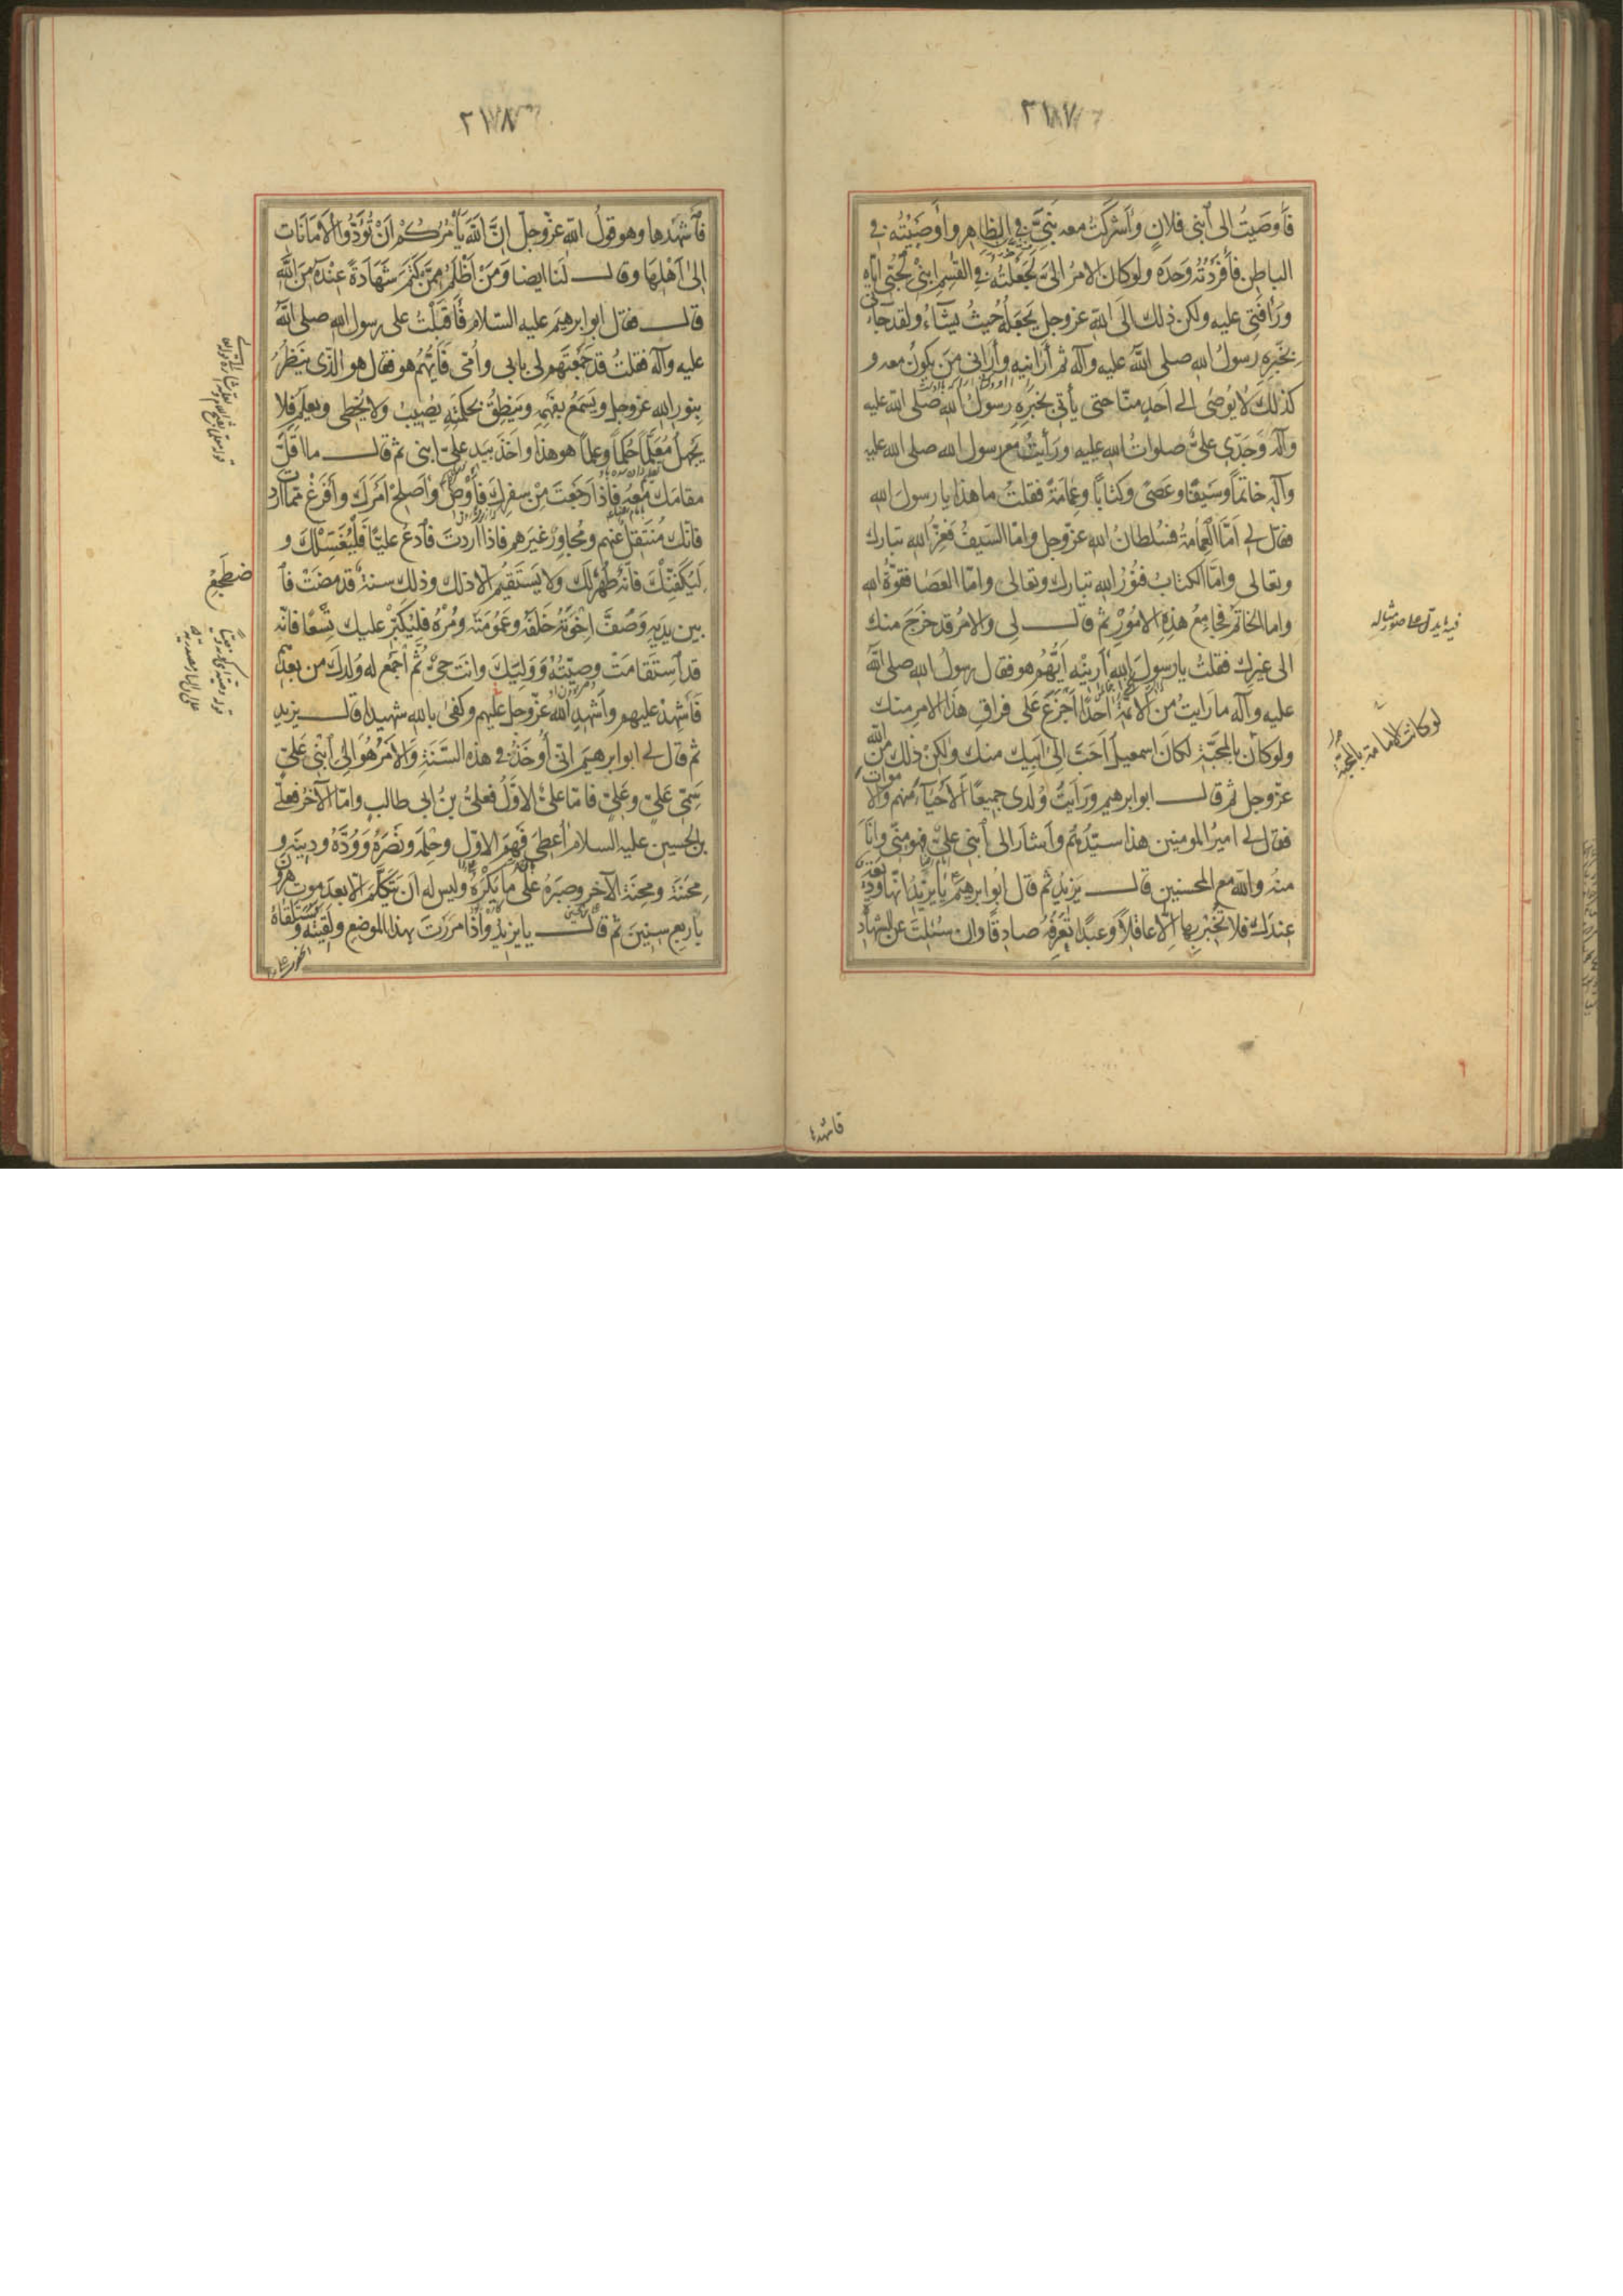 ٢١٧
فَأَوصَيتُ الى ٱبنى فلانٍ وَاَشرَكتُ معه بَنِيَّ فِي الظاهِرِ واَوصَيتُه فى
الباطِنِ فأَفرَدْتُه وَحدَه ولوكان الامرُ الىَّ لَجَعَلتُه فى القٰسِمِ ابنى لحُبّى ايّاه
ورَأفَتى عليه ولكن ذلك الَى اللهِ عزوجل يَجعَلُه حيثُ يَشآءُ ولقد جاءنى
بِخَبَرِه رسولُ الله صلى اللهُ عليه وآله ثم أَرانيهِ وأَرانى مَن يكونُ معه و
كذلك لايُوصٰى الى اَحَدٍ منّا حتى يأتىَ بخبَرِه رسولُ الله صلّى الله عليه
وآله وَجَدّى علىٌّ صلواتُ الله عليه ورَأيتُ مع رسول الله صلى الله عليه
وآله خاتَماً وسَيفًا وعَصًى وكتابًا وعِمامَةً فقلتُ ما هذا يا رسولَ الله
فقال لى اَمّا العِمامَةُ فسُلطانُ اللهِ عزّوجل وامّا السَيفُ فعِزُّ الله تبارك
وتعالى وامّا الكتابُ فنُورُ اللهِ تبارك وتعالى وامّا العَصٰا فقوّةُ الله
واما الخاتَمُ فجامِعُ هذِهِ الامُورِ ثم قال لى والامرُ قد خَرَجَ منك
الى غيرِك فقلتُ يا رسولَ اللهِ اَرِنيهِ اَيُّهُم هو فقال رسولُ الله صلى اللهُ
عليه وآله ما رَايتُ من الائمّةِ اَحَدًا اَجْزَعَ عَلى فراقِ هذا الامرِ منك
ولو كانَ بالمحبّةِ لكان اسمعيلُ اَحَبَّ اِلى اَبيك منك ولكن ذلك من الله
عزّوجل ثم قال ابو ابرهيم ورَاَيتُ وُلدى جميعًا اَلاَحيآءَ منهم والاموات
فقال لى اميرُ المومنين هذا سيّدُهُم وأشارَ الى ٱبنى علىٍّ فهو منّى وانَا
منه والله مع المحسنين قال يزيدُ ثم قال ابو ابرهيمَ يا يزيدُ انّها وَديعَةٌ
عندَك فلا تُخْبِر بها الاّ عاقلاً وعَبدًا تَعرِفُه صادِقًا وان سُئِلتَ عن الشهادَةِ
لو كانت الامامة بالمحبّة
فاشهدها
٢١٨
فٱَشهَدها وهو قولُ اللهِ عزّوجلّ اِنَّ اللهَ يَأمُرُكُم اَنْ تُؤَدُّوا الاَمَانَات
اِلى اَهْلِهَا وقال لَنا ايضا وَمَنْ اَظْلَمُ مِمَّنْ كَتَمَ شَهَادَةً عِنْدَهُ مِنَ اللهِ
قال فقال ابو ابرهيم عليه السّلام فَأَقبَلْتُ على رسول الله صلى اللهُ
عليه وآله فقلتُ قد جَمَعتَهم لى بابى واُمّى فَاَيُّهُم هو فقال هو الّذى يَنظُرُ
بِنورِ اللهِ عزوجل ويَسمَعُ بفَهمِه ويَنطِقُ بحكمَتِه يُصيبُ ولا يُخطى ويعلَمُ فلا
يَجهلُ مُعَلَّماً حُكماً وعِلماً هو هذا واَخَذَ بيَدِ علىٍّ ابنى ثم قال ما اَقلَّ
مقامَك معه فاِذا رَجَعتَ مِنْ سفرِك فأَوْصِ واَصلِحْ اَمرَك واَفرُغ ممّا اردت
فانّك مُنتقِلٌ عنهم ومُجاوِرٌ غيرَهم فاذا اَردتَ فٱدعُ عليًّا فَلْيُغَسِّلْك و
لْيُكَفِّنْكَ فاِنّه طُهرٌ لَك ولا يَستَقيمُ الاّ ذلك وذلك سنةٌ قد مضَتْ فٱ
ضطَجِعْ
بين يدَيهِ وَصُفَّ اِخْوَتَه خَلفَه وعُمومَتَه ومُرْهُ فليُكبّرْ عليك تِسْعًا فانّه
قد ٱستَقامَتْ وصِيّتُهُ ووَلِيَك وانت حَىٌّ ثُمّ اجمَع له وُلدَك من بعدهم
فَأَشهِدْ عليهم واَشهِدِ الله عزّوجل عليهم وكفى باللهِ شهيدا قال يزيد
ثم قال لى ابو ابرهيم انّى اُوخَذُ فى هذه السَّنَةِ والاَمرُ هُوَ اِلى ٱبنى عَلىٍّ
سَمِىِّ عَلىٍّ وعَلىٍّ فامّا علىٌّ الاوّلُ فعلىُّ بنُ ابى طالبٍ وامّا الآخرُ فعلىُّ
بن الحسين عليه السلام اُعطِىَ فَهمَ الاوّلِ وحِلمَه ونَصرَهُ ووُدَّهُ ودينَه و
مِحنَتَه ومِحنَةَ الآخرِ وصبرَهُ على ما يَكرَهُ وليس له ان يَتكلَّمَ الا بعدَ موتِ هرون
باربعِ سنينَ ثم قال يا يزيدُ واذا مَررَتَ بهذا الموضعِ ولَقيتَه وسَتَلقاهُ